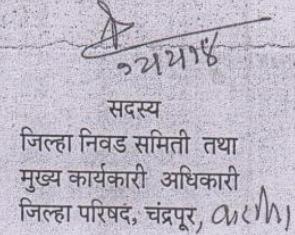 सदस्य
जिल्हा निवड समिती तथा
मुख्य कार्यकारी अधिकारी
जिल्हा परिषद, चंद्रपूर,